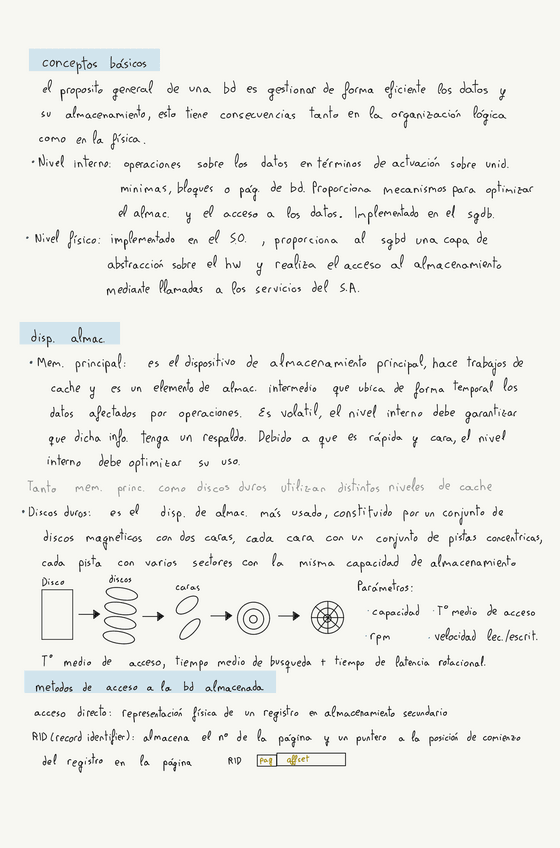 conceptos básicos
el proposito general de una bd es gestionar de forma eficiente los datos y
su almacenamiento, esto tiene consecuencias tanto en la organización lógica
como en la física.
· Nivel interno: operaciones sobre los datos en términos de actuación sobre unid.
minimas, bloques o pág. de bd. Proporciona mecanismos para optimizar
el almac. y el acceso a los datos. Implementado en el sgdb.
· Nivel físico: implementado en el S.O. , proporciona al sgbd una capa de
abstracción sobre el hw y realiza el acceso al almacenamiento
mediante llamadas a los servicios del S.A.
disp. almac.
· Mem. principal: es el dispositivo de almacenamiento principal, hace trabajos de
cache y es un elemento de almac. intermedio que ubica de forma temporal los
datos afectados por operaciones. Es volatil, el nivel interno debe garantizar
que dicha info. tenga un respaldo. Debido a que es rápida y cara, el nivel
interno debe optimizar su uso.
Tanto mem. princ. como discos duros utilizan distintos niveles de cache
· Discos duros: es el disp. de almac. más usado, constituido por un conjunto de
discos magneticos con dos caras, cada cara con un conjunto de pistas concentricas,
cada pista con varios sectores con la misma capacidad de almacenamiento
Disco discos caras Parámetros:
· capacidad · Tº medio de acceso
· rpm · velocidad lec./escrit.
Tº medio de acceso, tiempo medio de busqueda + tiempo de latencia rotacional.
metodos de acceso a la bd almacenada
acceso directo: representación física de un registro en almacenamiento secundario
RID (record identifier): almacena el nº de la página y un puntero a la posición de comienzo
del registro en la página RID pag offset